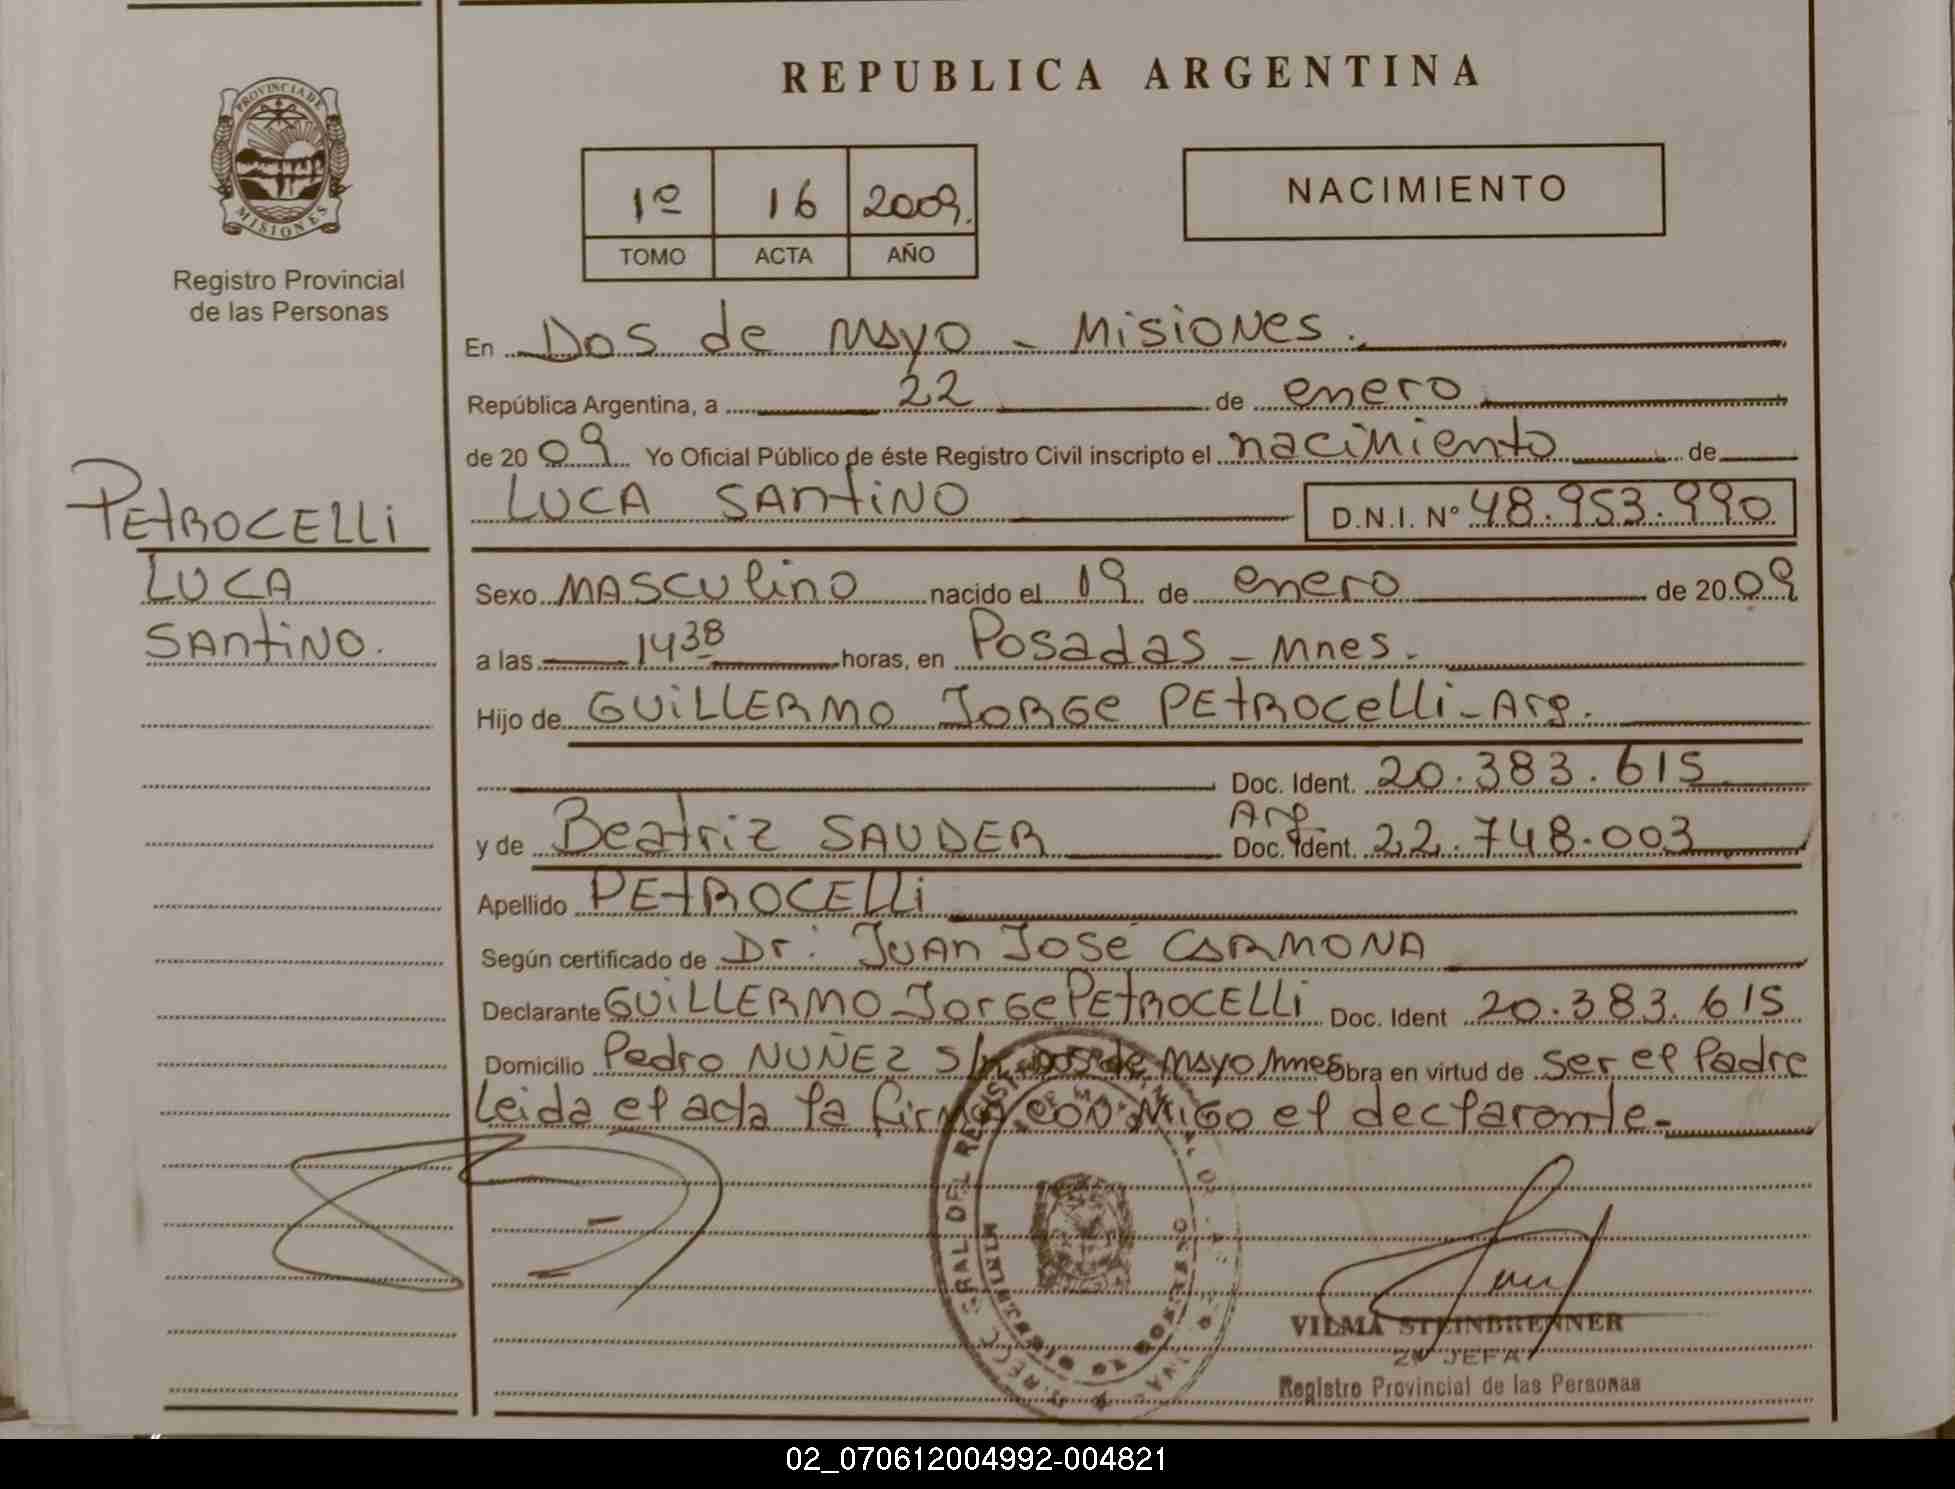 REPUBLICA ARGENTINA
PROVINCIA DE
MISIONES
Registro Provincial
de las Personas
1º 16 2009.
TOMO ACTA AÑO
NACIMIENTO
En Dos de mayo - Misiones.
República Argentina, a 22 de enero
de 2009 Yo Oficial Público de éste Registro Civil inscripto el nacimiento de
LUCA SANTINO D.N.I. Nº 48.953.990
PETROCELLI
LUCA
SANTINO.
Sexo MASCULINO nacido el 19 de enero de 2009
a las 14 38 horas, en Posadas - Mnes.
Hijo de GUILLERMO JORGE PETROCELLI - Arg.
Doc. Ident. 20.383.615
y de Beatriz SAUDER Arg. Doc. Ident. 22.748.003
Apellido PETROCELLI
Según certificado de Dr. JUAN JOSÉ CARMONA
Declarante GUILLERMO JORGE PETROCELLI Doc. Ident 20.383.615
Domicilio Pedro NUÑEZ s/n Dos de mayo Mnes Obra en virtud de ser el Padre
Leida el acta la firma con migo el declarante.-
VILMA STEINBRENNER
2ª JEFA
Registro Provincial de las Personas
02_070612004992-004821